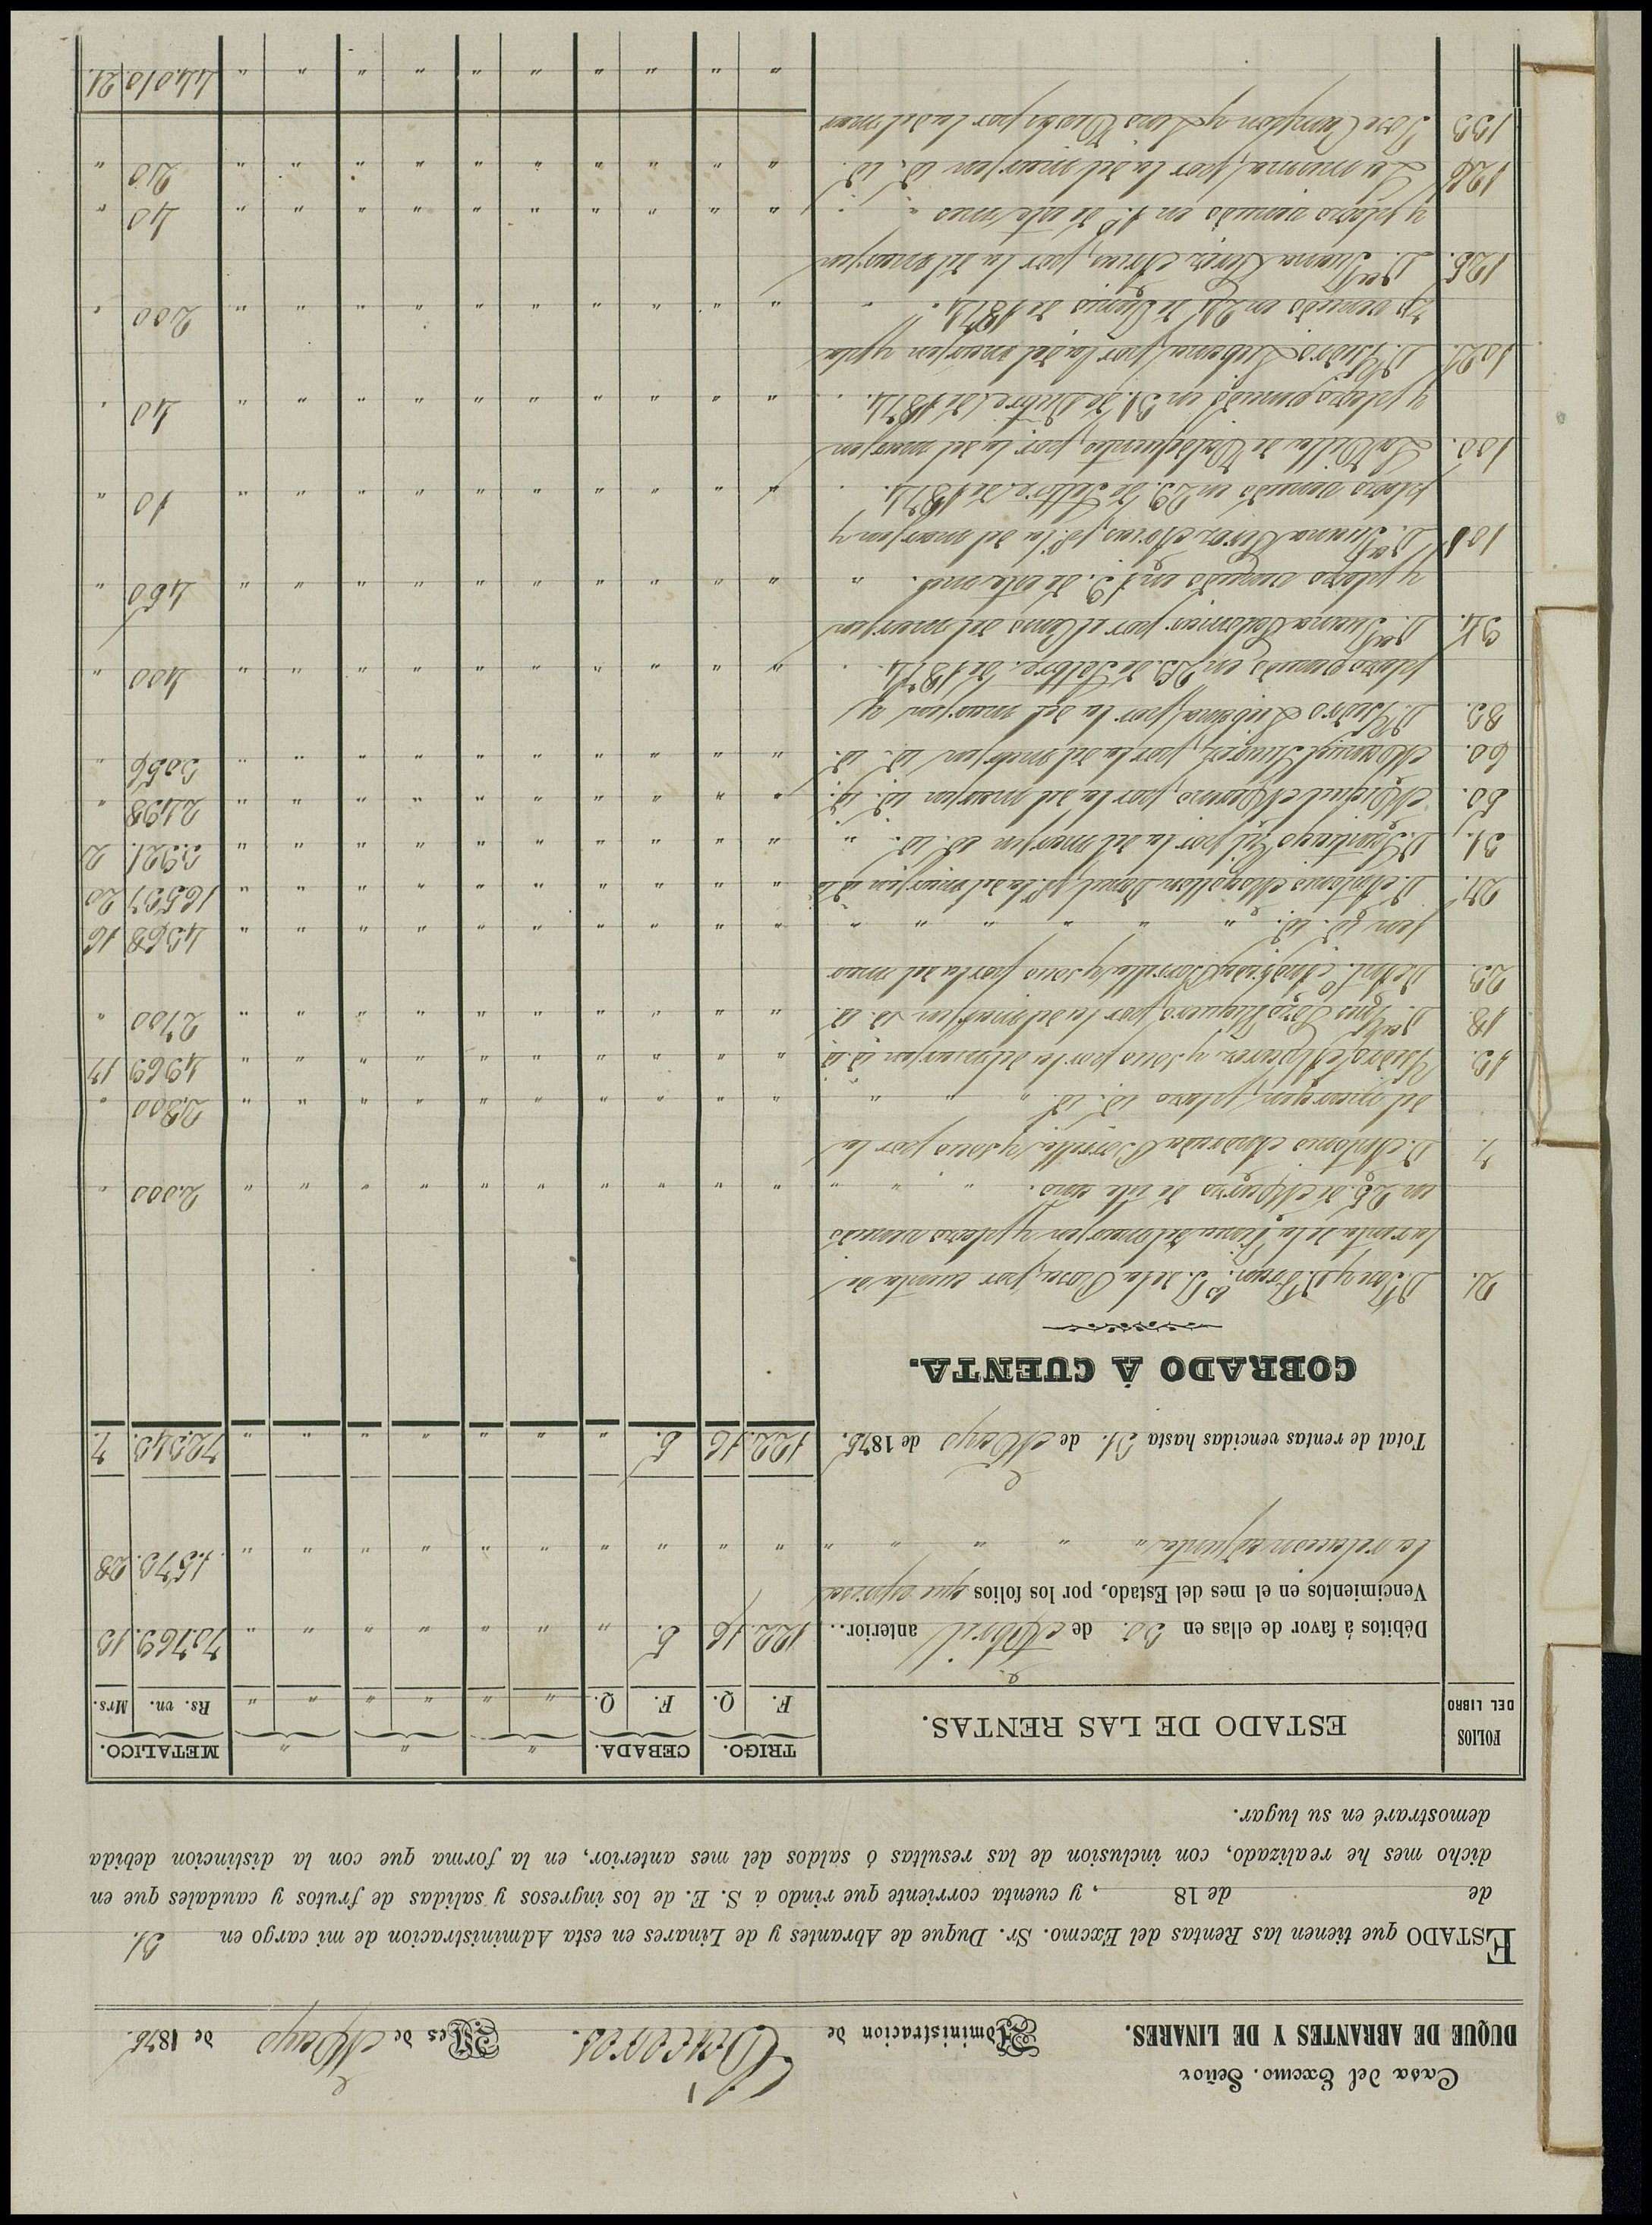 Casa del Excmo. Señor
DUQUE DE ABRANTES Y DE LINARES.
Administracion de
Mes de Mayo de 1875.
ESTADO que tienen las Rentas del Excmo. Sr. Duque de Abrantes y de Linares en esta Administracion de mi cargo en 31.
de de 18 , y cuenta corriente que rindo á S. E. de los ingresos y salidas de frutos y caudales que en
dicho mes he realizado, con inclusion de las resultas ó saldos del mes anterior, en la forma que con la distincion debida
demostraré en su lugar.
FOLIOS DEL LIBRO ESTADO DE LAS RENTAS. TRIGO. CEBADA. " " " METALICO.
F. Q. F. Q. " " " " " " Rs. vn. Mrs.
Débitos á favor de ellas en 30. de Abril anterior.. 122. 16 5. " " " " " " " 70.769. 13
Vencimientos en el mes del Estado, por los folios que espresa
la relacion adjunta " " " " " " " " " " " " " " 1.573. 28
Total de rentas vencidas hasta 31. de Mayo de 1875. 122. 16 5. " " " " " " " 72.343. 7.
COBRADO Á CUENTA.
2. D. José y D. Franco. G. de la Rosa, por cuenta de
la renta de la finca del margen y plazo vencido
en 25. de Marzo de este año. " " " " " " " " " " " " " 2.000 "
7. D. Antonio Andrada Borrilla y socio por la
del margen, plazo id. id. " " " " " " " " " " " " " 2.800 "
13. Ysidro Alvarez y socio por la del margen id. id. " " " " " " " " " " 4969 17
18. D. Ygnº Pozo Piquero, por la del margen id. id. " " " " " " " " " " 2700 "
23. De Ant. Andrada Borrilla y socio por la del mar
jen id. id. " " " " " " " " " " " " " " " 4.368 16
27. D. Antonio Mogollon Daniel, pr. la del margen id. id. " " " " " " " " " " 16537 20
31. D. Santiago Gil por la del margen id. id. " " " " " " " " " " " 3.321. 2
50. Miguel Moreno, por la del margen id. id. " " " " " " " " " " 2498 "
60. Manuel Suarez, por la del margen id. id. " " " " " " " " " " 3056 "
83. D. Ysidro Liebana, por la del margen y
plazo vencido en 29. de Setbre. de 1874. " " " " " " " " " " 400 "
94. Dª. Juana Palomar por el censo del margen
y plazo vencido en 13. de este mes. " " " " " " " " " " " 450 "
101 Dª. Juana Perez Arias, pr. la del margen y
plazo vencido en 29. de Setbre. de 1874. " " " " " " " " " " 10 "
100. La Villa de Valdefuentes, por la del margen
y plazo vencido en 31. de Dicbre. de 1874. " " " " " " " " " " 40 "
102. D. Ysidro Liebana, por la del margen y pla
zo vencido en 24 de Junio de 1874. " " " " " " " " " " 200 "
125. Dª. Juana Perez Arias, por la del margen
y plazo vencido en 1º. de este mes " " " " " " " " " " " " 40 "
126 La misma, por la del margen id. id. " " " " " " " " " " 20 "
133 Jose Campon y Ana por la del mar
" " " " " " " " " " 44.010 21.